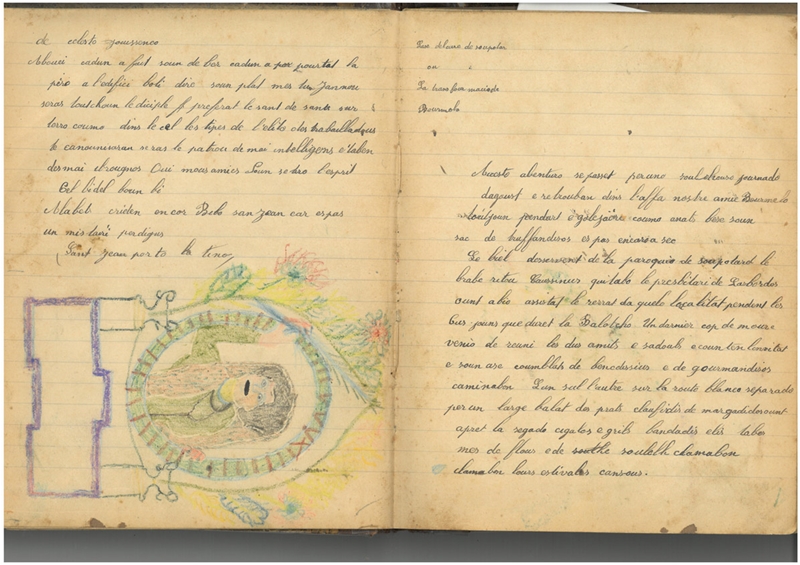 de celesto jouissenco
Abouei cadun a fait soun de bor cadun a pourtat la
peiro a l'edifice boti dire soun plat mes tu Janmou
seras toutchoun le diciple preferat le sant de sants sur
terro coumo dins le cel les tipes de l'elito des traballadous
te canounisaran seras le patrou de mai intelligens e taben
des mai ibrougnos Oui mous amics Soun sedro l'esprit
Es bidel boun bi
Alabets criden encor Bebo san Jean car es pas
un mis tari perdigus
Sant Jean porto la tino
Lus delams de soapotar
ou
La transfourmaciu de
Bourmelo
Aucesto abenturo se passet per uno soulelhouso journado
dagoust e retrouban dins l'affa nostre amic Bourmelo
toutjoun pendart e galejaire coumo anats bese soun
sac de truffandisos es pas encoro a sec
Le biel desservent de la paroquio de soapotard le
brabe ritou Caussinus quitabo le presbitari de Lasbordos
ount abio assistat le serrat da quelo localitat pendent les
tres jouns que duret la Balotcho Un darnier cop de mourre
venio de reani les dus amits e sadouls e countentennitat
e soun ase coumblats de benedissius e de gourmandisos
caminabon l'un sul l'autre sur la route blanco separado
per un large balat des prats claufidis de margaridos ount
apret la segado cigalos e grils bandadis elis labo
mes de flous e de soulelh clamabon
clamabon lours estivales cansous.